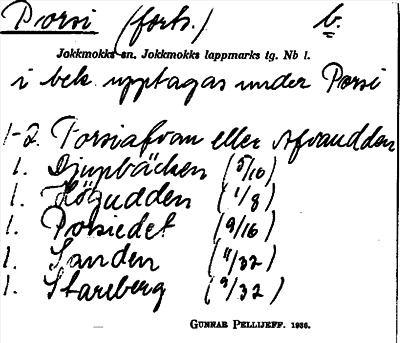 Porsi (forts.) b.
Jokkmokks sn. Jokkmokks lappmarks tg. Nb l.
i bek. upptagas under Porsi
1-2. Porsiafvan eller Afvaudden
1. Djupbäcken (5/16)
1. Högudden (1/8)
1. Porsiedet (9/16)
1. Sanden (11/32)
1. Stareberg (9/32)
GUNNAR PELLIJEFF. 1936.